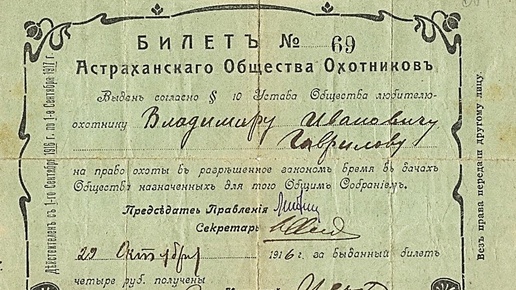 БИЛЕТЪ № 69
Астраханскаго Общества Охотниковъ
Выденъ согласно § 10 Устава Общества любителю-
охотнику Владимиру Ивановичу
Гаврилову
на право охоты въ разрѣшенное закономъ время въ дачахъ
Общества назначенныхъ для того Общимъ Собраніемъ.
Предсѣдатель Правленія
Секретарь
22 Октября 1916 г. за выданный билетъ
четыре руб. получены
Дѣйствителенъ съ 1-го Сентября 1916 г. по 1-е Сентября 1917 г.
Безъ права передачи другому лицу.